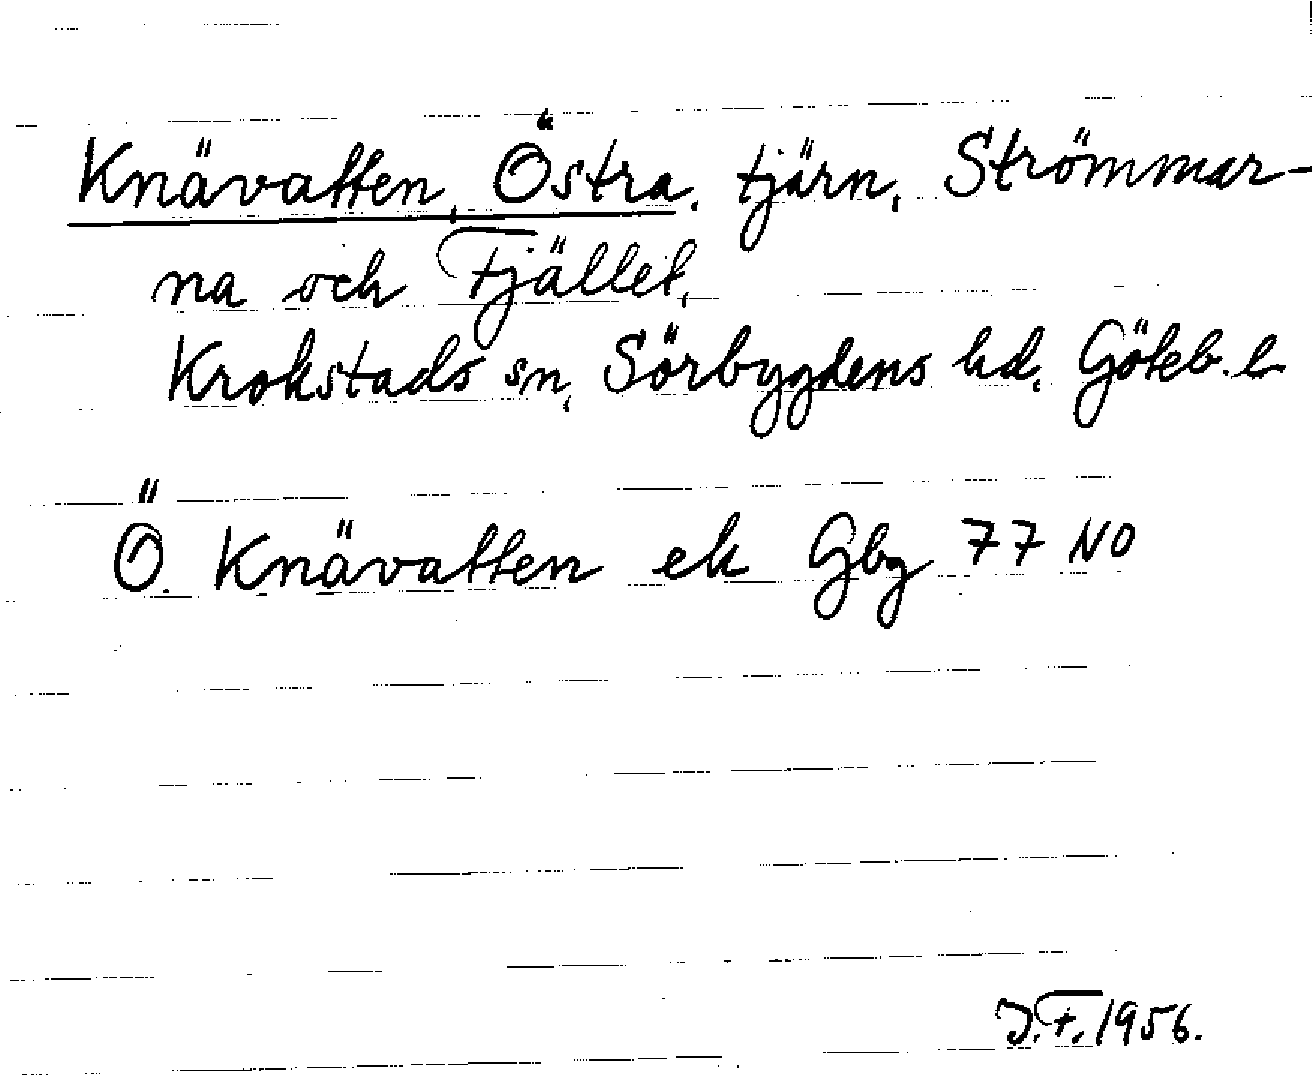 Knävatten, Östra, tjärn, Strömmar-
na och Fjället,
Krokstads sn, Sörbygdens hd, Göteb. l
Ö. Knävatten ek Gbg 77 NO
J.F. 1956.